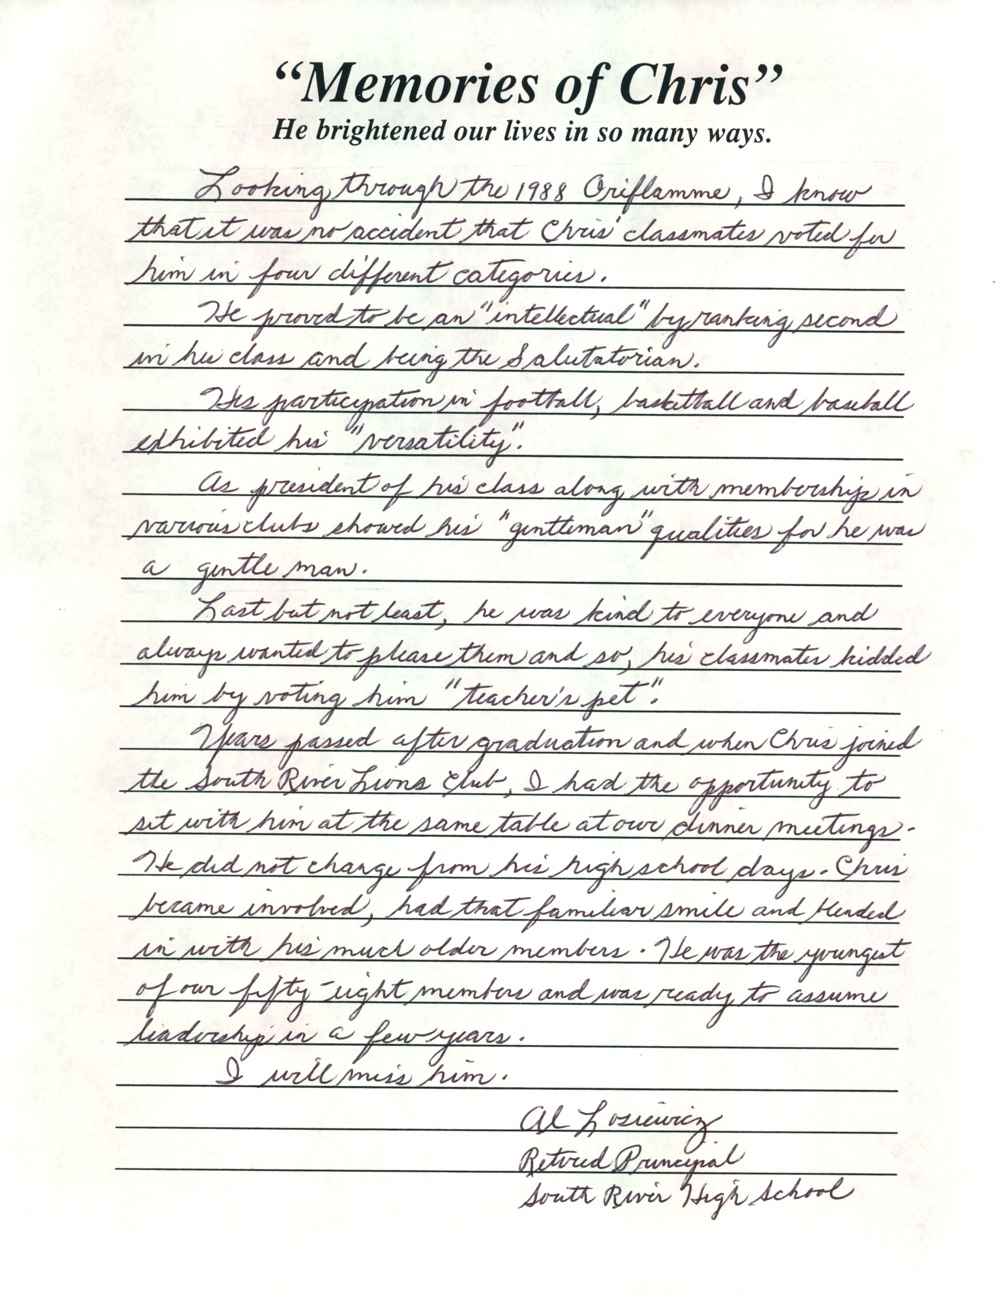 “Memories of Chris”
He brightened our lives in so many ways.
Looking through the 1988 Oriflamme, I know
that it was no accident that Chris' classmates voted for
him in four different categories.
He proved to be an "intellectual" by ranking second
in his class and being the Salutatorian.
His participation in football, basketball and baseball
exhibited his "versatility".
As president of his class along with membership in
various clubs showed his "gentleman" qualities for he was
a gentle man.
Last but not least, he was kind to everyone and
always wanted to please them and so, his classmates kidded
him by voting him "teacher's pet".
Years passed after graduation and when Chris joined
the South River Lions Club, I had the opportunity to
sit with him at the same table at our dinner meetings.
He did not change from his high school days. Chris
became involved, had that familiar smile and blended
in with his much older members. He was the youngest
of our fifty-eight members and was ready to assume
leadership in a few years.
I will miss him.
Al Losiewicz
Retired Principal
South River High School